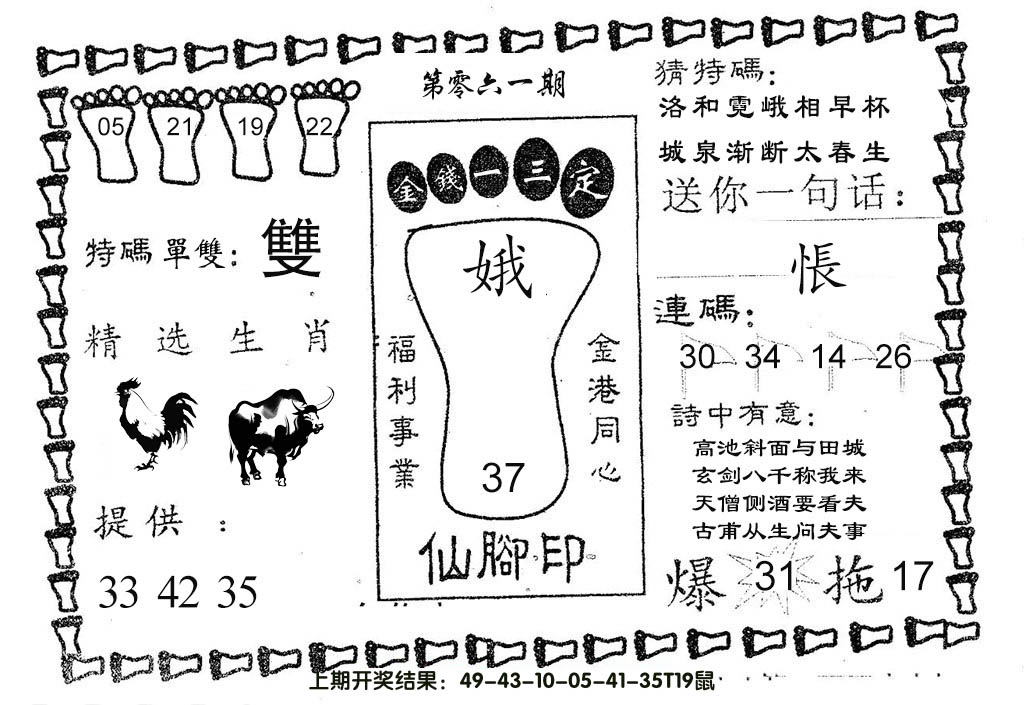 第零六一期
05 21 19 22
特碼單雙：雙
精选生肖
提供：
33 42 35
金錢一三定
娥
福利事業
金港同心
37
仙腳印
猜特碼：
洛和霓峨相早杯
城泉渐断太春生
送你一句话：
悵
連碼：
30 34 14 26
詩中有意：
高池斜面与田城
玄剑八千称我来
天僧侧酒要看夫
古甫从生问夫事
爆 31 拖 17
上期开奖结果：49-43-10-05-41-35T19鼠